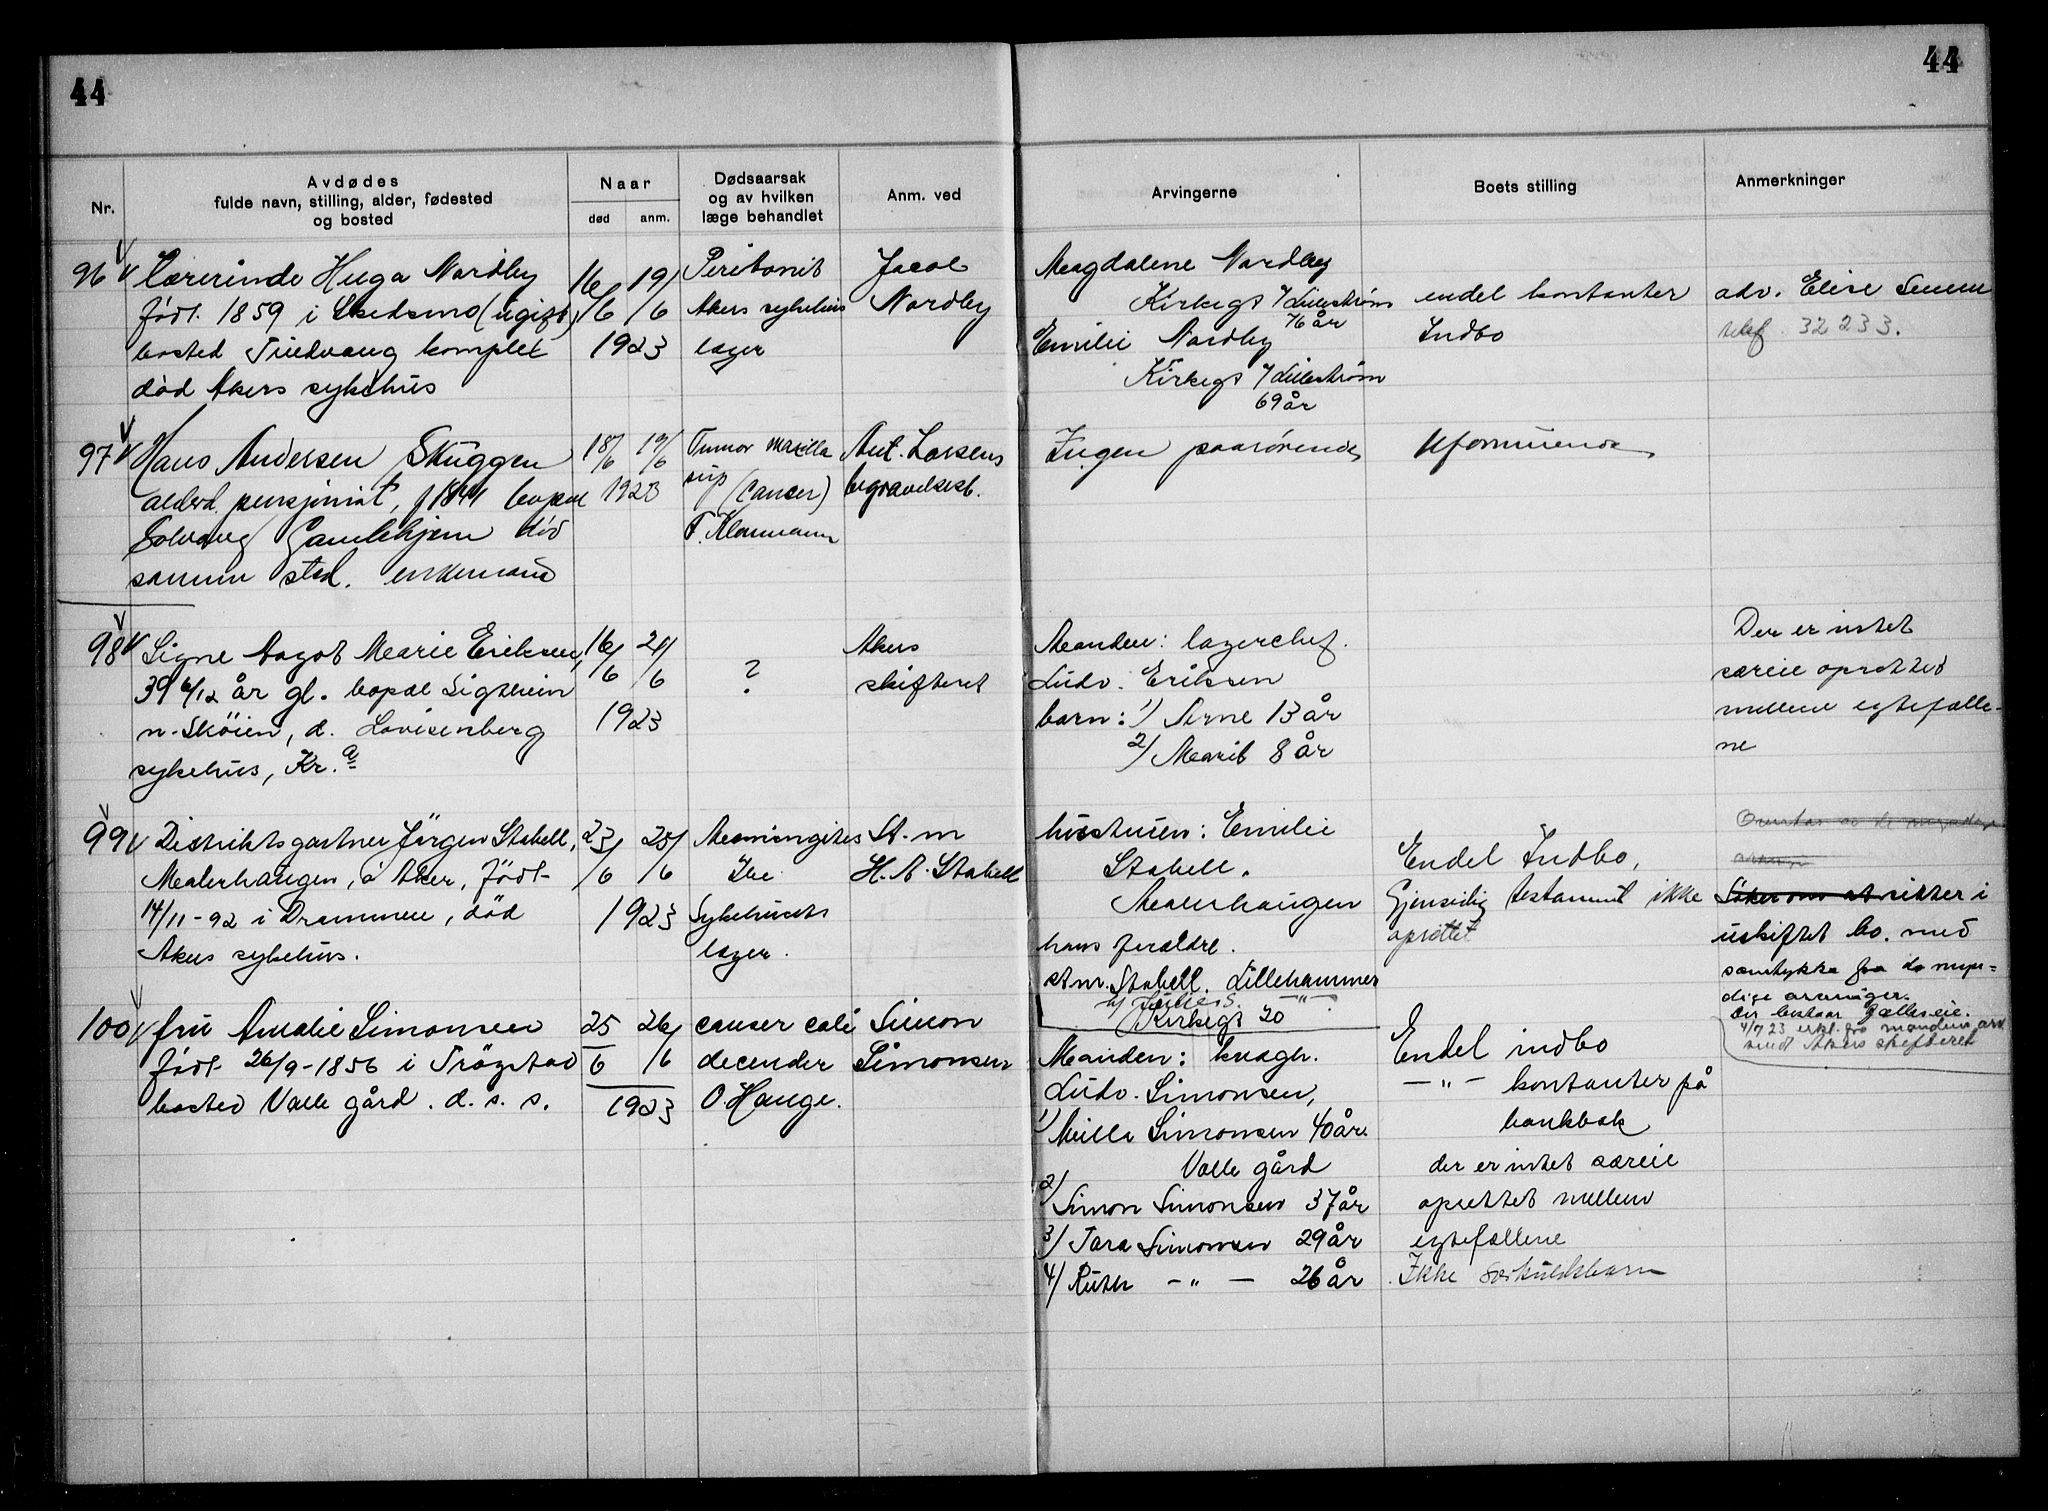 44
44
Nr.
Avdødes
fulde navn, stilling, alder, fødested
og bosted
Naar
død
anm.
Dødsaarsak
og av hvilken
læge behandlet
Anm. ved
Arvingerne
Boets stilling
Anmerkninger
96 Lærerinde Huga Nordby
født. 1859 i Skedsmo (ugift)
bosted Tuedvang komplex
død Akers sykehus
16/6 19/6
1923
Peritonit
Akers sykehus
læger
Jacob
Nordby
Magdalene Nordby
Kirkegt 7 Lillestrøm
76 år
Emilie Nordby
Kirkegt 7 Lillestrøm
69 år
endel kontanter
Indbo
adv. Elise
telf. 32233.
97 Hans Andersen Skuggen
alderd. pensjonist, f 1841 bopæl
Solvang Gamlehjem død
samme sted. enkemand
18/6 19/6
1923
Tumor maxilla
sup (cancer)
F. Klaumann
Ant. Larsens
begravelsesb.
Ingen paarørende
Uformuende
98 Signe Aagot Marie Eriksen,
39 6/12 år gl. bopæl Sigtheim
n. Skøien, d. Lovisenberg
sykehus, Kr.a
16/6 21/6
1923
?
Akers
skifteret
Manden: lagerchef.
Ludv. Eriksen
barn: 1) Arne 13 år
2) Marit 8 år
Der er intet
særeie oprettet
mellem egtefælle-
ne
99 Distriktsgartner Jørgen Stabell,
Malerhaugen, i Aker, født
14/11-92 i Drammen, død
Akers sykehus.
23/6 25/6
1923
Meningites
Tbc
Sykehusets
læger.
St. m
H. A. Stabell
hustruen: Emilie
Stabell.
Malerhaugen
hans forældre.
st m. Stabell. Lillehammer
Kirkegt 20
Endel Indbo,
Gjensidig testament ikke
oprettet
Søker om at sitter i
uskiftet bo. med
samtykke fra de myn-
dige arvinger.
Der bestaar fælleseie.
4/7 23 erkl. fra manden
sendt Akers skifteret
100 fru Amalie Simonsen
født 26/9-1856 i Trøgstad
bosted Valle gård. d. s. s.
25/6 26/6
1923
cancer coli
decender
O. Hauge.
Simon
Simonsen
Manden: knagh.
Ludv. Simonsen,
1) Milla Simonsen 40 år.
Valle gård
2) Simon Simonsen 37 år
3) Tara Simonsen 29 år
4) Ruth -"- 26 år
Endel indbo
-"- kontanter på
bankbok
der er intet særeie
oprettet mellem
egtefællene
Ikke særkuldsbarn